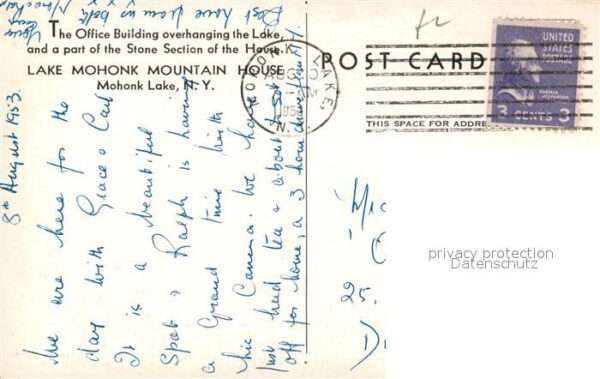 The Office Building overhanging the Lake,
and a part of the Stone Section of the House.
LAKE MOHONK MOUNTAIN HOUSE
Mohonk Lake, N. Y.
POST CARD
THIS SPACE FOR ADDRE
UNITED
STATES
POSTAGE
THOMAS
JEFFERSON
3 CENTS 3
MOHONK LAKE
N.Y.
8th August 1953.
We are here for the
day with Grace & Carl
It is a beautiful
Spot & Ralph is having
a Grand time with
his Camera. We have
just had tea & about to start
off for home, a 3 hour drive
Best love from us both
x x
25.
privacy protection
Datenschutz